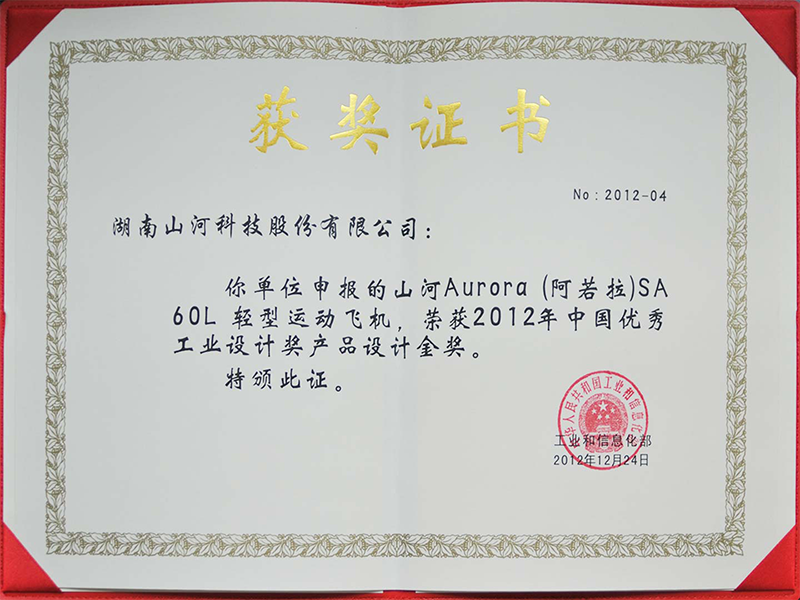 获奖证书
No：2012-04
湖南山河科技股份有限公司：
你单位申报的山河Aurora (阿若拉)SA
60L 轻型运动飞机，荣获2012年中国优秀
工业设计奖产品设计金奖。
特颁此证。
中华人民共和国工业和信息化部
工业和信息化部
2012年12月24日